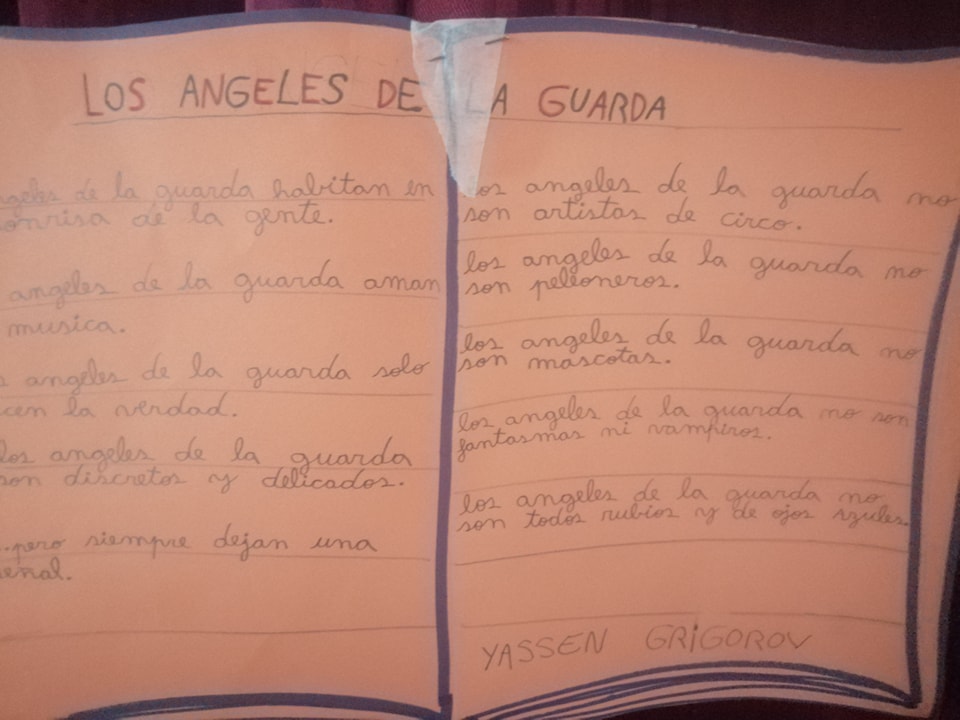 LOS ANGELES DE LA GUARDA
de la guarda habitan en
de la gente.
angeles de la guarda aman
musica.
angeles de la guarda solo
la verdad.
los angeles de la guarda
son discretos y delicados.
...pero siempre dejan una
los angeles de la guarda no
son artistas de circo.
los angeles de la guarda no
son peleoneros.
los angeles de la guarda no
son mascotas.
los angeles de la guarda no son
fantasmas ni vampiros.
los angeles de la guarda no
son todos rubios y de ojos azules.
YASSEN GRIGOROV